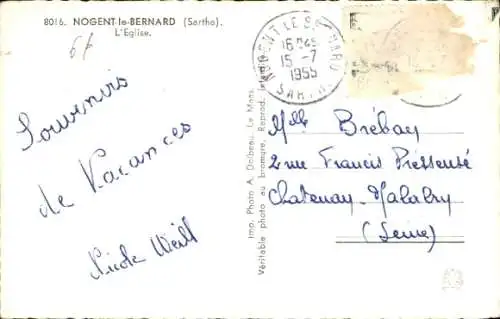 8016. NOGENT-le-BERNARD (Sarthe).
L'Eglise.
6f
NOGENT LE BERNARD
16H45
15-7
1955
SARTHE
Souvenirs
de Vacances
Nicole Weill
Imp. Photo A. Dolbeau, Le Mans.
Véritable photo au bromure. Reprod. interd.
Mlle Brébay
2 rue Francis Pressensé
Chatenay-Malabry
(Seine)